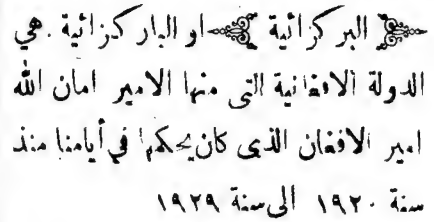 ﴿ البركزائية ﴾ او الباركزائية . هي
الدولة الافغانية التى منها الامير امان الله
امير الافغان الذى كان يحكمها في أيامنا منذ
سنة ١٩٢٠ الى سنة ١٩٢٩